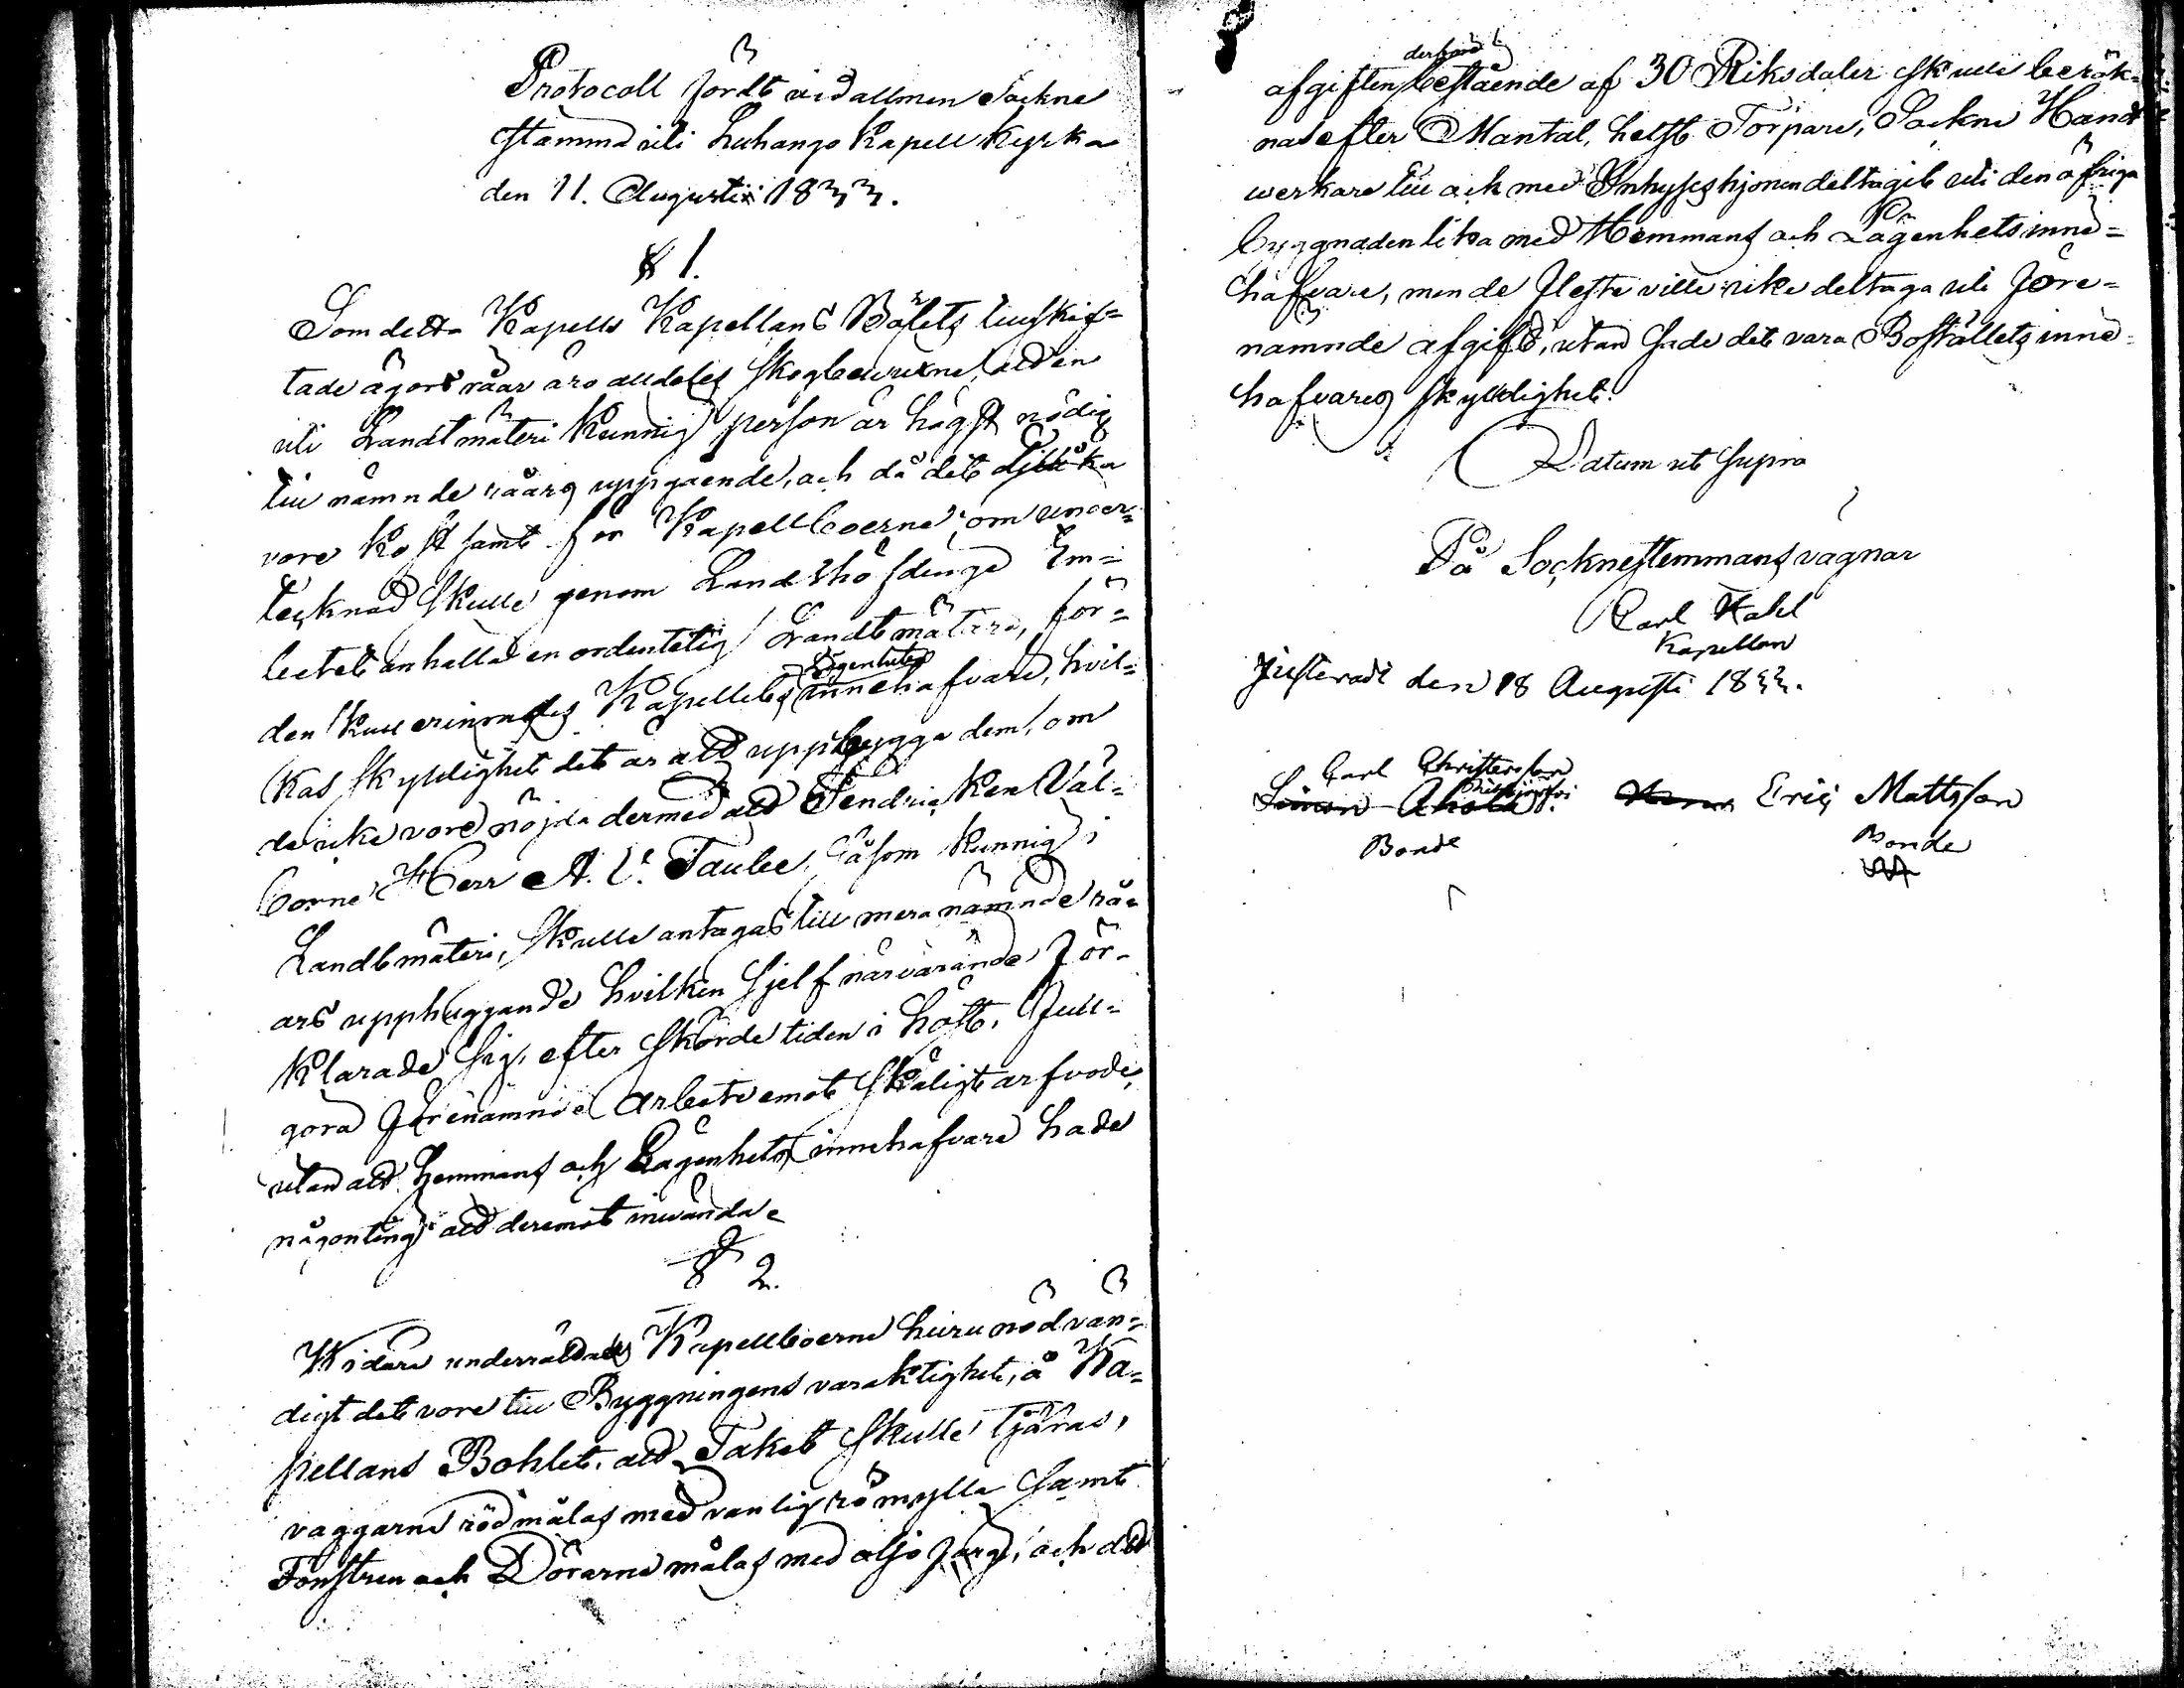 Protocoll fördt vid allmen Sockne
stämma uti Luhango Kapell Kyrka
den 11. Augusti 1833.
§ 1.
Som detta Kapells Kapellans Bolets tillskif=
tade ägors råar äro alldeles skogbewuxne, att en
uti Landtmäteri kunnig person är högst nödig
till nämnde råars uppgående, och då det
vore kostsamt för Kapellboerne, om under=
tecknad skulle genom Landshöfdinge Em=
betet anhålla en ordentelig Landtmätare, för=
den skull Kapellets Lägenhets innehafvare, hvil=
kas skyldighet det är att uppbygga dem, om
de icke vore nöjda dermed att
Herr A. V. Taube, såsom kunnig i
Landtmäteri, skulle antagas till mera nämnde rå=
ars upphuggande hvilken sjelf närvarande för=
klarade sig, efter skördetiden i höst, full=
göra förenämnde arbete emot skäligt arfvode,
utan att Hemmans och Lägenhets innehafvare hade
någonting att deremot inwända.
§ 2.
Widare underrättades Kapellboerne huru nödvän=
digt det vore till Byggningens varaktighet, å Ka=
pellans Bohlet, att Taket skulle tjäras,
väggarne rödmålas med vanlig römylla samt
Fönstren och Dörarne målas med oljo färg, och att
afgiften derför bestående af 30 Riksdaler skulle beräk=
nas efter Mantal, helst Torpare, Sockne Handt
werkare till och med Inhyses hjonen deltagit uti den öfriga
byggnaden lika med Hemmans och Lägenhets inne=
hafvare, men de fleste ville icke deltaga uti före=
nämnde afgift, utan sade det vara Boställets inne=
hafvares skyldighet.
Datum ut supra
På Socknestemmans vägnar
Carl Wahl
Kapellan
Justeradt den 18 Augusti 1833.
Carl Christersson
Simon Ahola Eric Mattsson
Bonde Bonde